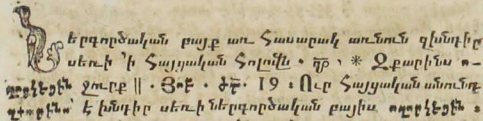 Ներգործական բայք առ Հասարակ առնուն զխնդիր
սեռի ՛ի Հայցական Հոլովն ․ ※ Զքարինս ո-
ղորկեցին ջուրք ‖ ․ Յոբ ․ ԺԴ ․ 19 ։ Ուր Հայցական անունդ
զքարինս՝ է խնդիր սեռի ներգործական բայիս ողորկեցին ։